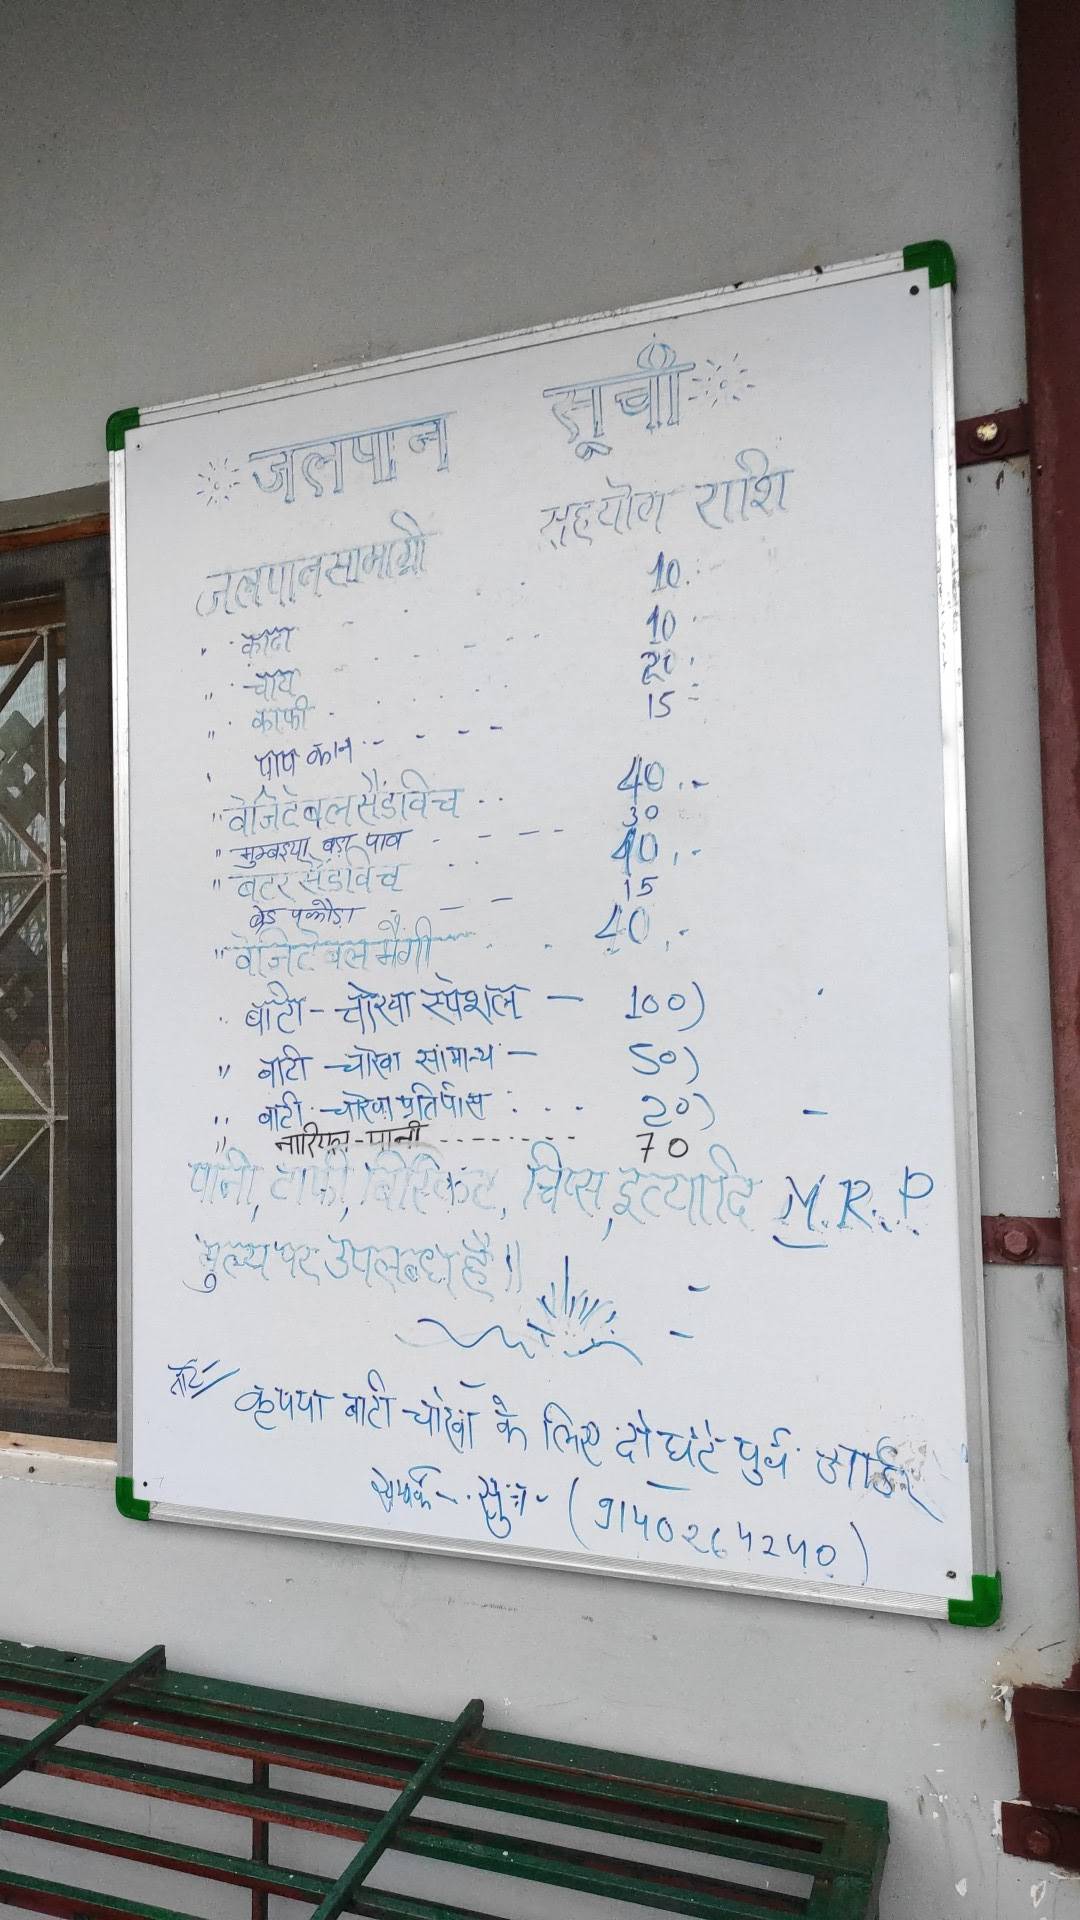 जलपान सूची
जलपान सामाग्री सहयोग राशि
" काढ़ा 10
" चाय 10
" काफी 20
" पाप कान 15
" वेजिटेबल सैंडविच 40
" मुम्बइया बड़ा पाव 30
" बटर सैंडविच 40
ब्रेड पकौड़ा 15
" वेजिटेबल मैगी 40
" बाटी - चोखा स्पेशल - 100)
" बाटी - चोखा सामान्य - 50)
" बाटी - चोखा प्रतिपीस 20)
" नारियल - पानी 70
पानी, टाफी, बिस्किट, चिप्स, इत्यादि M.R.P
मुल्य पर उपलब्ध है ॥
नोट कृपया बाटी चोखा के लिए दो घंटे पुर्व आर्डर
सम्पर्क - सुत्र - (9140264240)